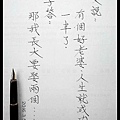 人說：
有個好老婆，人生就成功
一半了
子答：
那我長大要娶兩個…